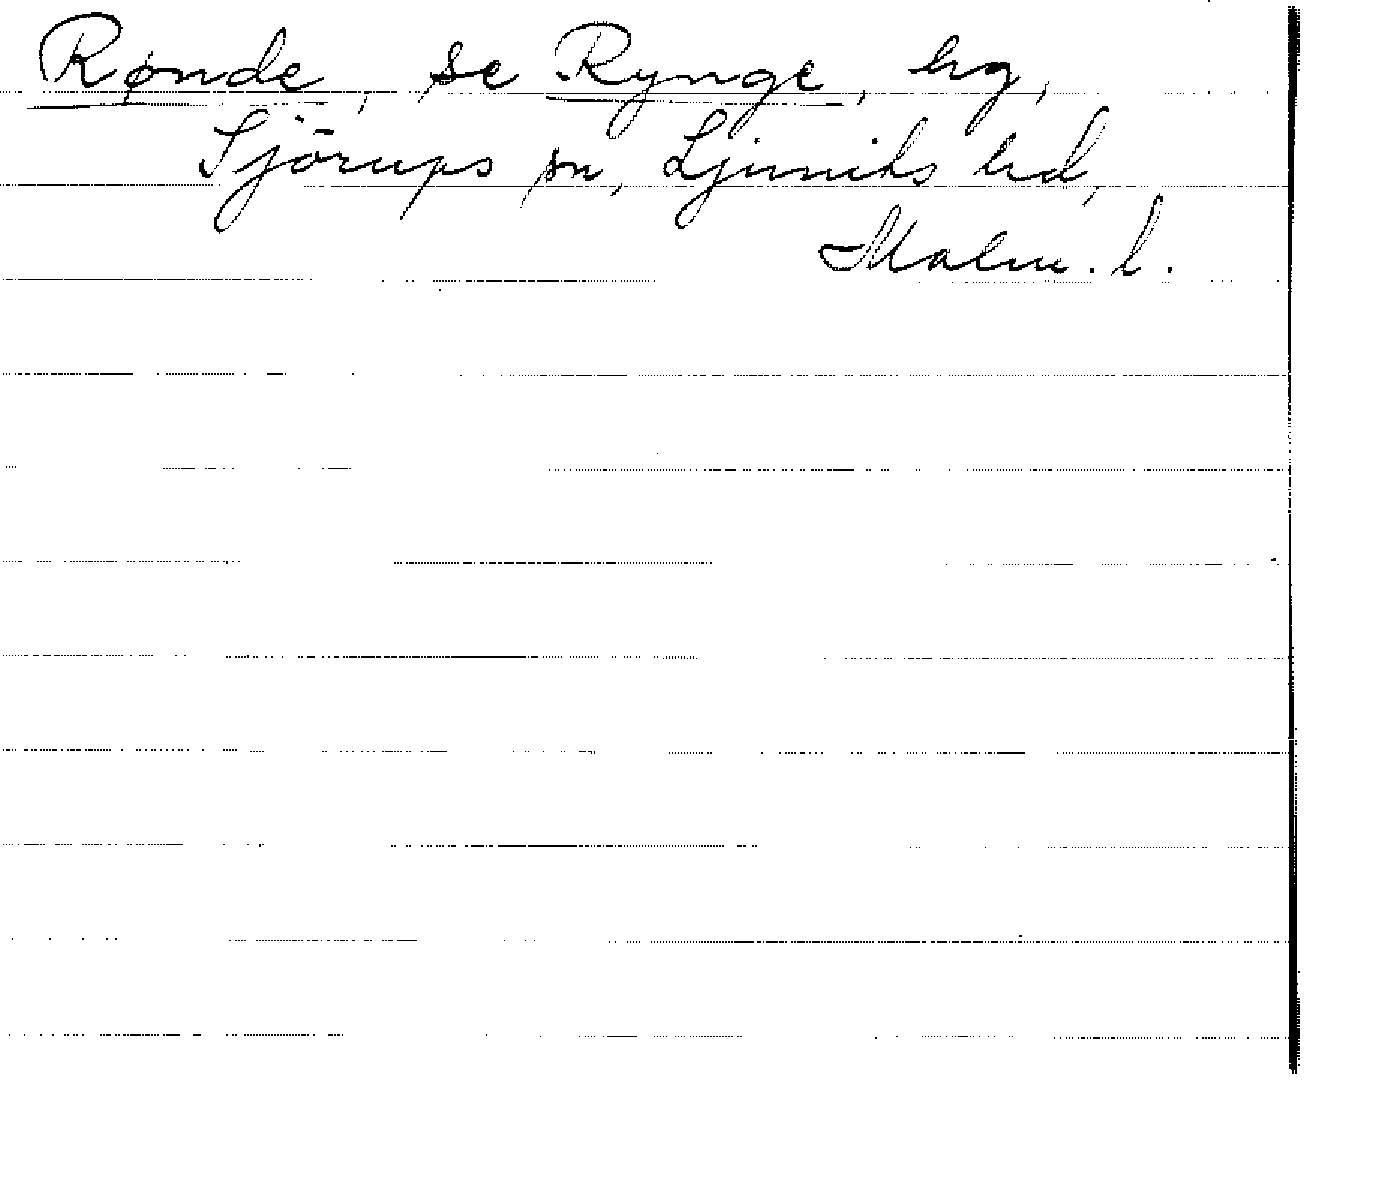 Rønde, se Rynge, hg,
Sjörups sn, Ljunits hd,
Malm. l.